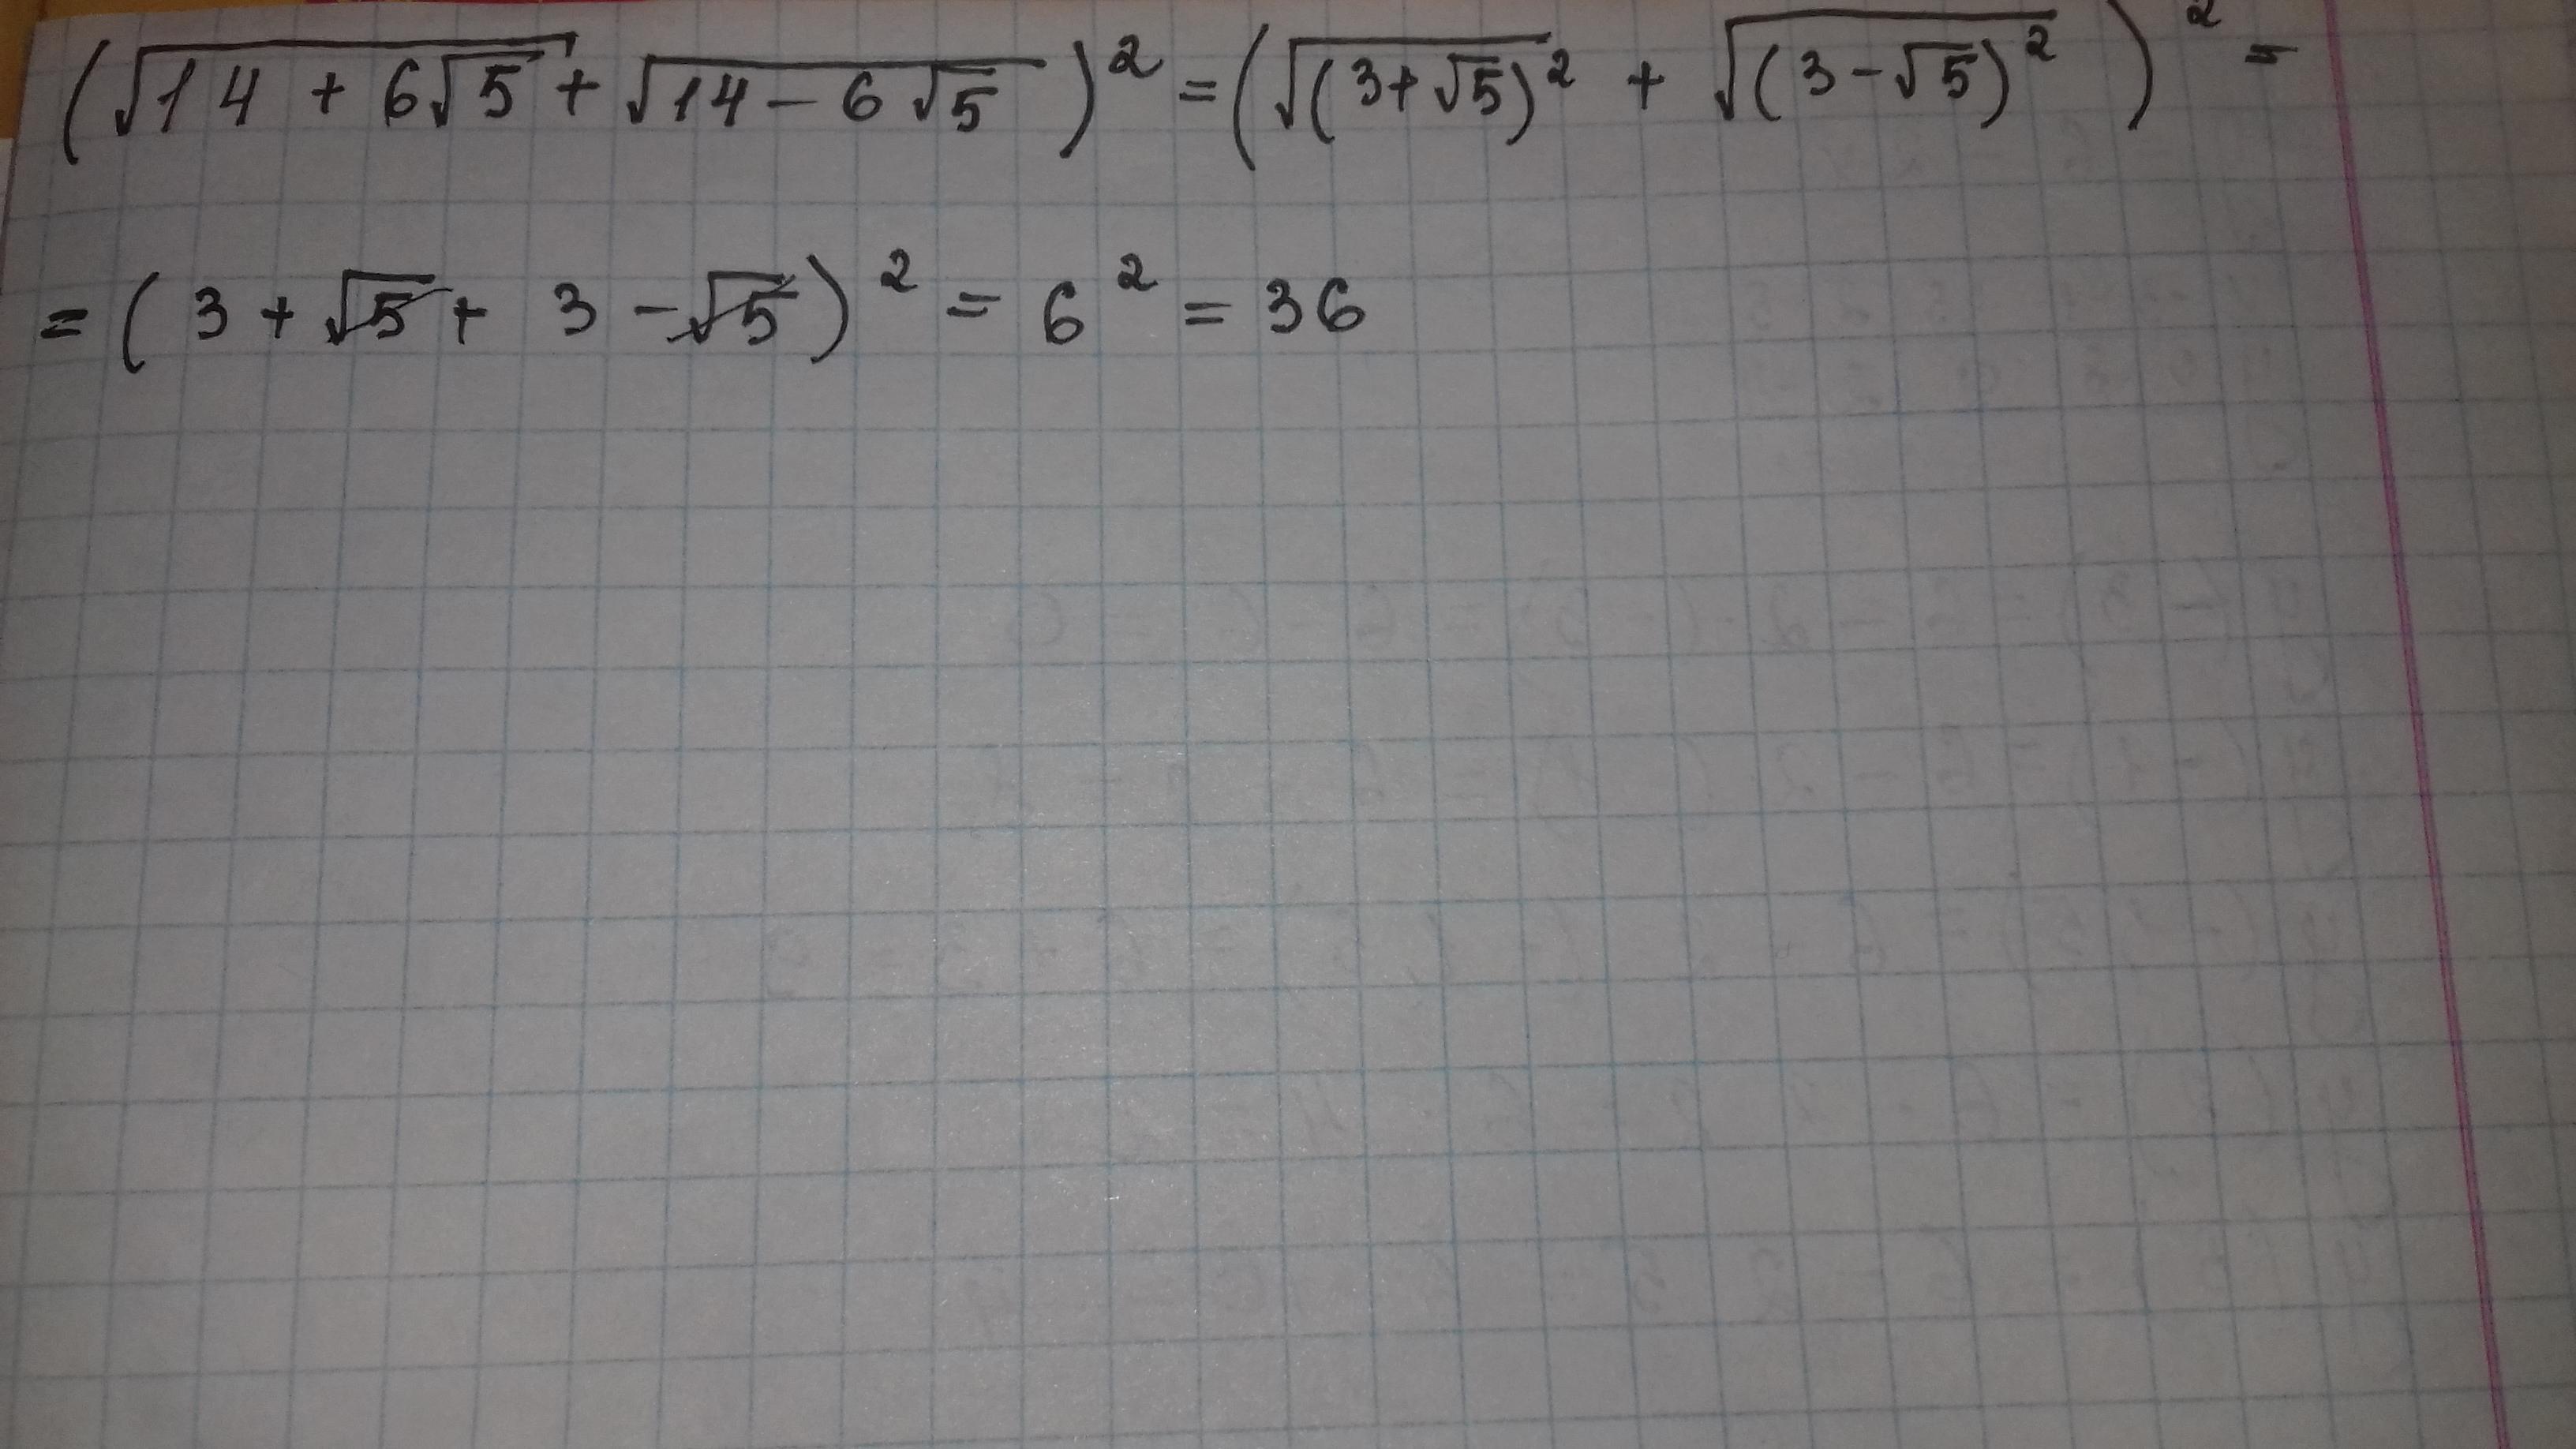 (√(14 + 6√5) + √(14 - 6√5))² = (√((3+√5)²) + √((3-√5)²))² =
= (3 + √5 + 3 - √5)² = 6² = 36